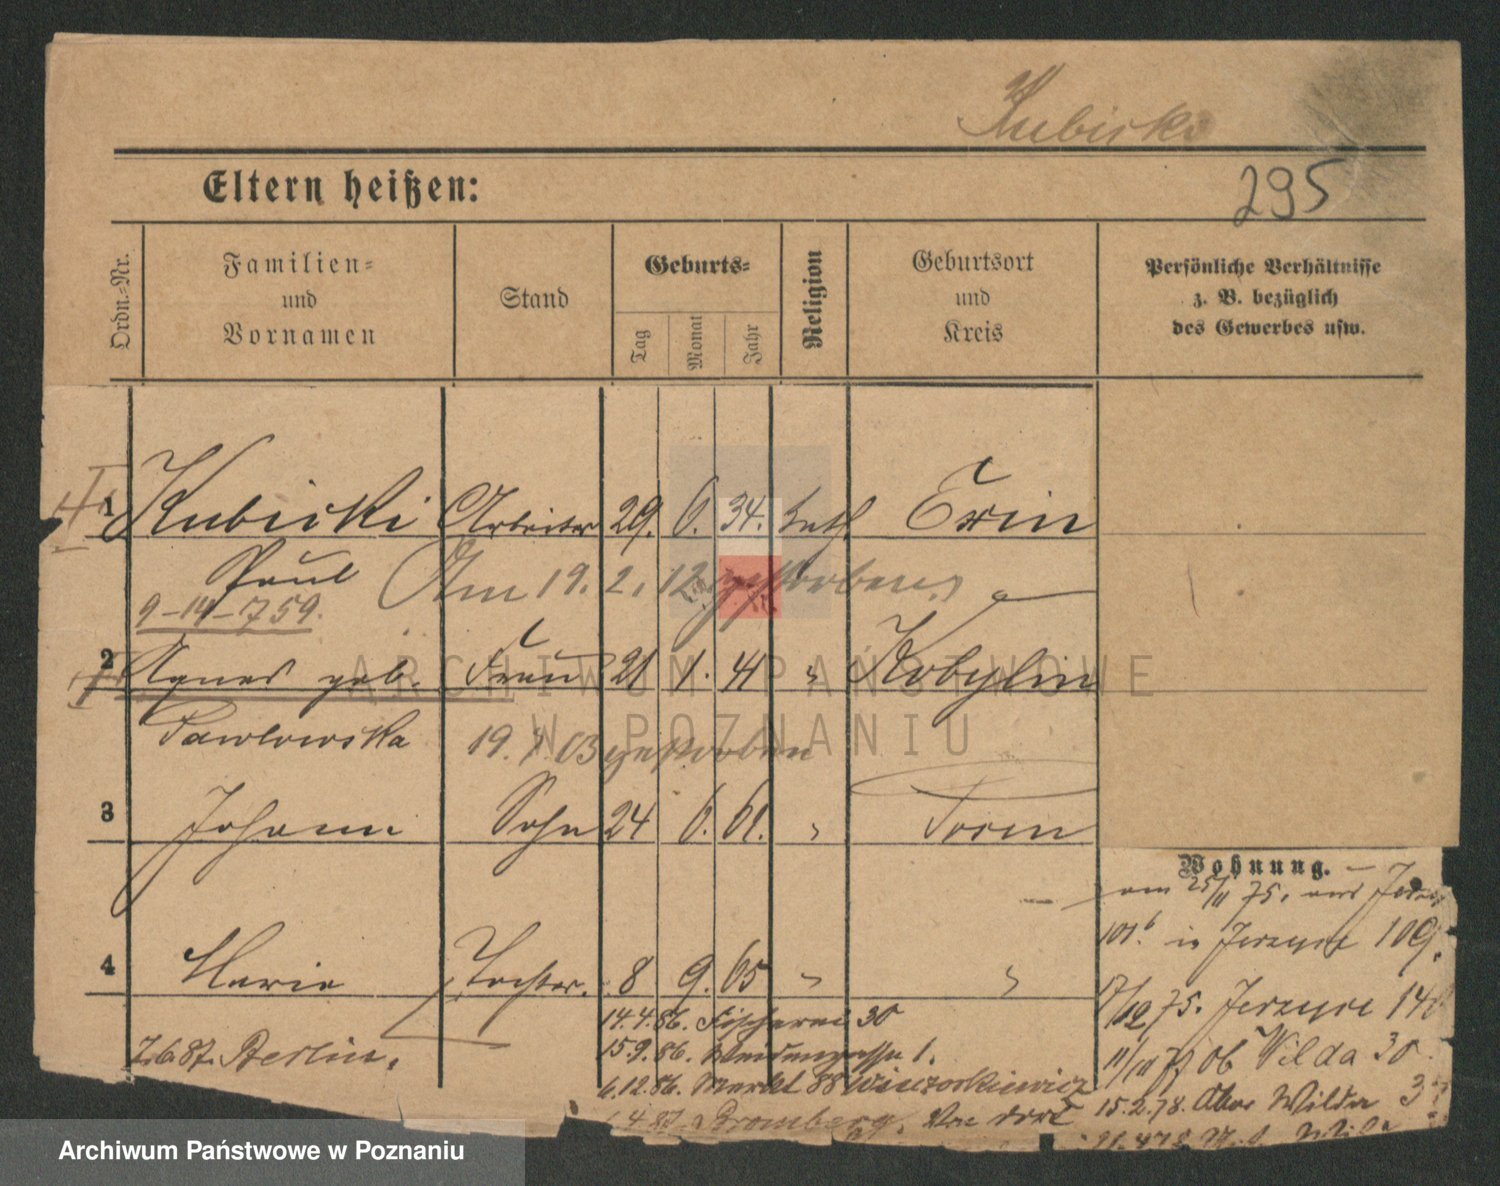 Kubicki
Eltern heißen:
295
Ordn.-Nr.
Familien-
und
Vornamen
Stand
Geburts-
Tag
Monat
Jahr
Religion
Geburtsort
und
Kreis
Persönliche Verhältnisse
z. B. bezüglich
des Gewerbes usw.
1 Kubicki Arbeiter 29. 6. 34. kath Exin
Paul Am 19. 2. 12 gestorben.
9-14-759.
2 Agnes geb. Frau 21 1. 41 " Kobylin
Pawlowska 19. 7 03 gestorben
3 Johann Sohn 24 6. 61. "
Wohnung.
am 25/11 75. aus
101.b in Jerzyce 109.
4 Maria Tochter. 8 9. 65 " "
17/12 75. Jerzyce
14.4.86. Fischerei 30
7.6.87. Berlin.
15.9.86. Weidengasse 1.
Wilda 30
6.12.86. Markt 88 Wieczorkiewicz
4.87. Bromberg. Von dort
15.2.78. Ober Wilda
ARCHIWUM PAŃSTWOWE
W POZNANIU
Archiwum Państwowe w Poznaniu